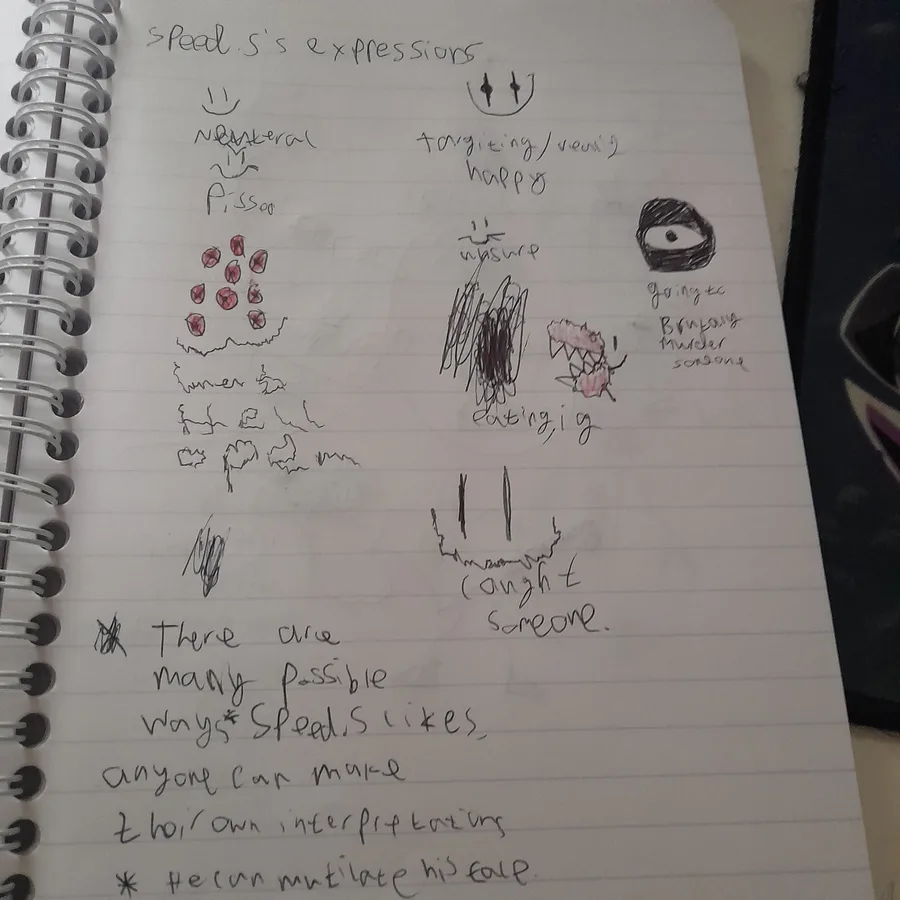 speed.S's expressions
Neuteral
targiting/
happy
Pissed
unsure
going to
Brutaly
Murder
someone
eating, ig
caught
someone.
There are
many possible
ways* Speed.S likes,
anyone can make
their own interpretations
* He can mutilate his face.